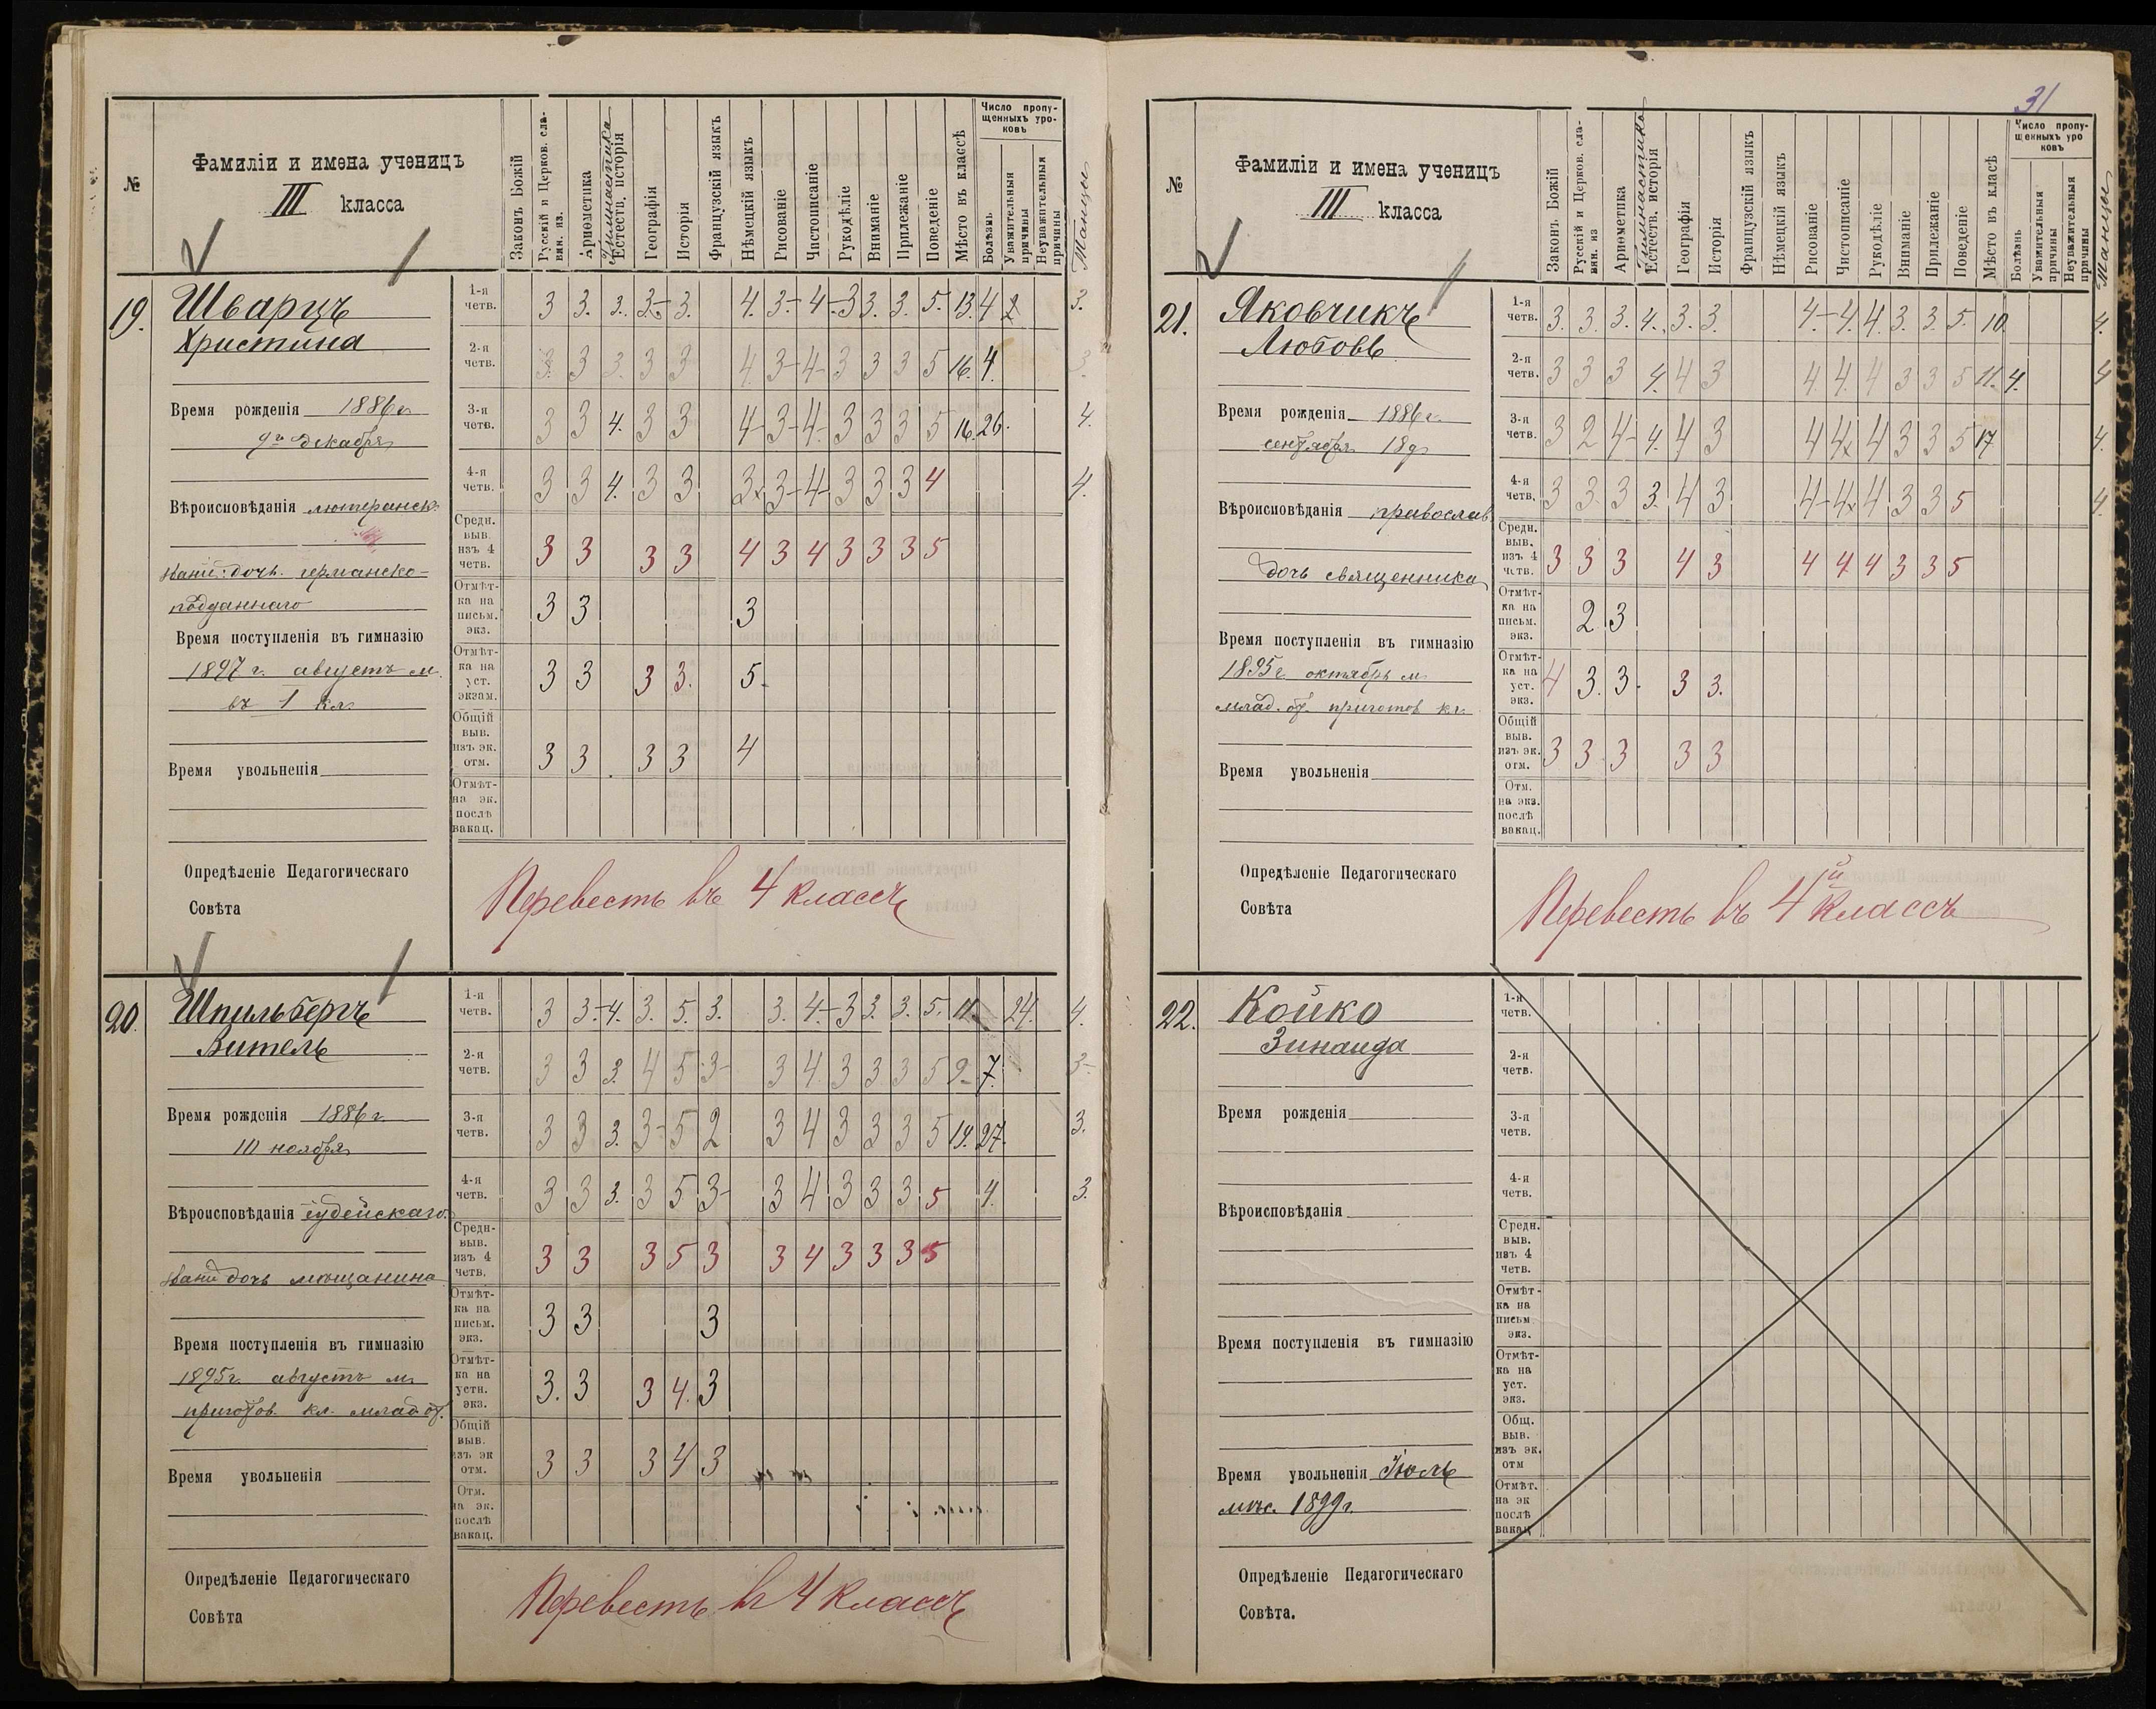 №
Фамиліи и имена ученицъ
III класса
Законъ Божій
Русскій и Церков. сла-
вян. яз.
Ариѳметика
Гимнастика
Естеств. исторія
Географія
Исторія
Французскій языкъ
Нѣмецкій языкъ
Рисованіе
Чистописаніе
Рукодѣліе
Вниманіе
Прилежаніе
Поведеніе
Мѣсто въ классѣ
Число пропу-
щенныхъ уро-
ковъ
Болѣзнь
Уважительныя
причины
Неуважительныя
причины
Танцы
19.
Шварцъ
Христина
Время рожденія 1886 г.
9го декабря
Вѣроисповѣданія лютеранск.
Звані: дочь германско-
подданнаго
Время поступленія въ гимназію
1897 г. августъ м.
въ 1 кл.
Время увольненія
1-я четв. 3 3. 3. 3- 3. 4. 3- 4- 3 3. 3. 5. 13. 4 2 3.
2-я четв. 3 3 3. 3 3 4 3- 4- 3 3 3 5 16. 4. 3.
3-я четв. 3 3 4. 3 3 4- 3- 4- 3 3 3 5 16. 26. 4.
4-я четв. 3 3 4. 3 3 3× 3- 4- 3 3 3 4 4.
Средн. выв. изъ 4 четв. 3 3 3 3 4 3 4 3 3 3 5
Отмѣт-ка на письм. экз. 3 3 3
Отмѣт-ка на уст. экзам. 3 3 3 3. 5.
Общій выв. изъ эк. отм. 3 3 3 3 4
Отмѣт-на эк. послѣ вакац.
Опредѣленіе Педагогическаго
Совѣта
Перевесть въ 4 классъ
20.
Шпильбергъ
Витель
Время рожденія 1886 г.
10 ноября
Вѣроисповѣданія іудейскаго.
Звані дочь мѣщанина
Время поступленія въ гимназію
1895 г. августъ м.
приготов. кл. млад. от.
Время увольненія
1-я четв. 3 3.- 4. 3. 5. 3. 3. 4.- 3 3. 3. 5. 11. 24. 4.
2-я четв. 3 3 3. 4 5 3- 3 4 3 3 3 5 9- 7. 3-
3-я четв. 3 3 3. 3- 5 2 3 4 3 3 3 5 19. 27. 3.
4-я четв. 3 3 3. 3 5 3- 3 4 3 3 3 5 4. 3.
Средн- выв. изъ 4 четв. 3 3 3 5 3 3 4 3 3 3 5
Отмѣт-ка на письм. экз. 3 3 3
Отмѣт-ка на устн. экз. 3. 3 3 4. 3
Общій выв. изъ эк отм. 3 3 3 4 3
Отм. на эк. послѣ вакац.
Опредѣленіе Педагогическаго
Совѣта
Перевесть въ 4 классъ
31
№
Фамиліи и имена ученицъ
III класса
Законъ Божій
Русскій и Церков. сла-
вян. яз
Ариѳметика
Гимнастика
Естеств. исторія
Географія
Исторія
Французскій языкъ
Нѣмецкій языкъ
Рисованіе
Чистописаніе
Рукодѣліе
Вниманіе
Прилежаніе
Поведеніе
Мѣсто въ класѣ
Число пропу-
щенныхъ уро
ковъ
Болѣзнь
Уважительныя
причины
Неуважительныя
причины
Танцы
21.
Яковчикъ
Любовь
Время рожденія 1886 г.
сентября 18го
Вѣроисповѣданія православ.
дочь священника
Время поступленія въ гимназію
1895 г. октябрь м.
млад. от. приготов кл.
Время увольненія
1-я четв. 3. 3. 3. 4. 3. 3. 4.- 4. 4. 3. 3. 5. 10. 4.
2-я четв. 3 3 3 4. 4 3 4 4. 4 3 3 5 11. 4. 4
3-я четв. 3 2 4- 4. 4 3 4 4× 4 3 3 5 17 4.
4-я четв. 3 3 3 3. 4 3 4- 4× 4 3 3 5 4.
Средн. выв. изъ 4 четв. 3 3 3 4 3 4 4 4 3 3 5
Отмѣт-ка на письм. экз. 2 3
Отмѣт-ка на уст. экз. 4 3. 3. 3 3.
Общій выв. изъ эк. отм. 3 3 3 3 3
Отм. на экз. послѣ вакац.
Опредѣленіе Педагогическаго
Совѣта
Перевесть въ 4й классъ
22.
Койко
Зинаида
Время рожденія
Вѣроисповѣданія
Время поступленія въ гимназію
Время увольненія Іюль
мѣс. 1899 г.
1-я четв.
2-я четв.
3-я четв.
4-я четв.
Средн. выв. изъ 4 четв.
Отмѣт-ка на письм экз.
Отмѣт-ка на уст. экз.
Общ. выв. изъ эк. отм
Отмѣт. на эк послѣ вакац
Опредѣленіе Педагогическаго
Совѣта.